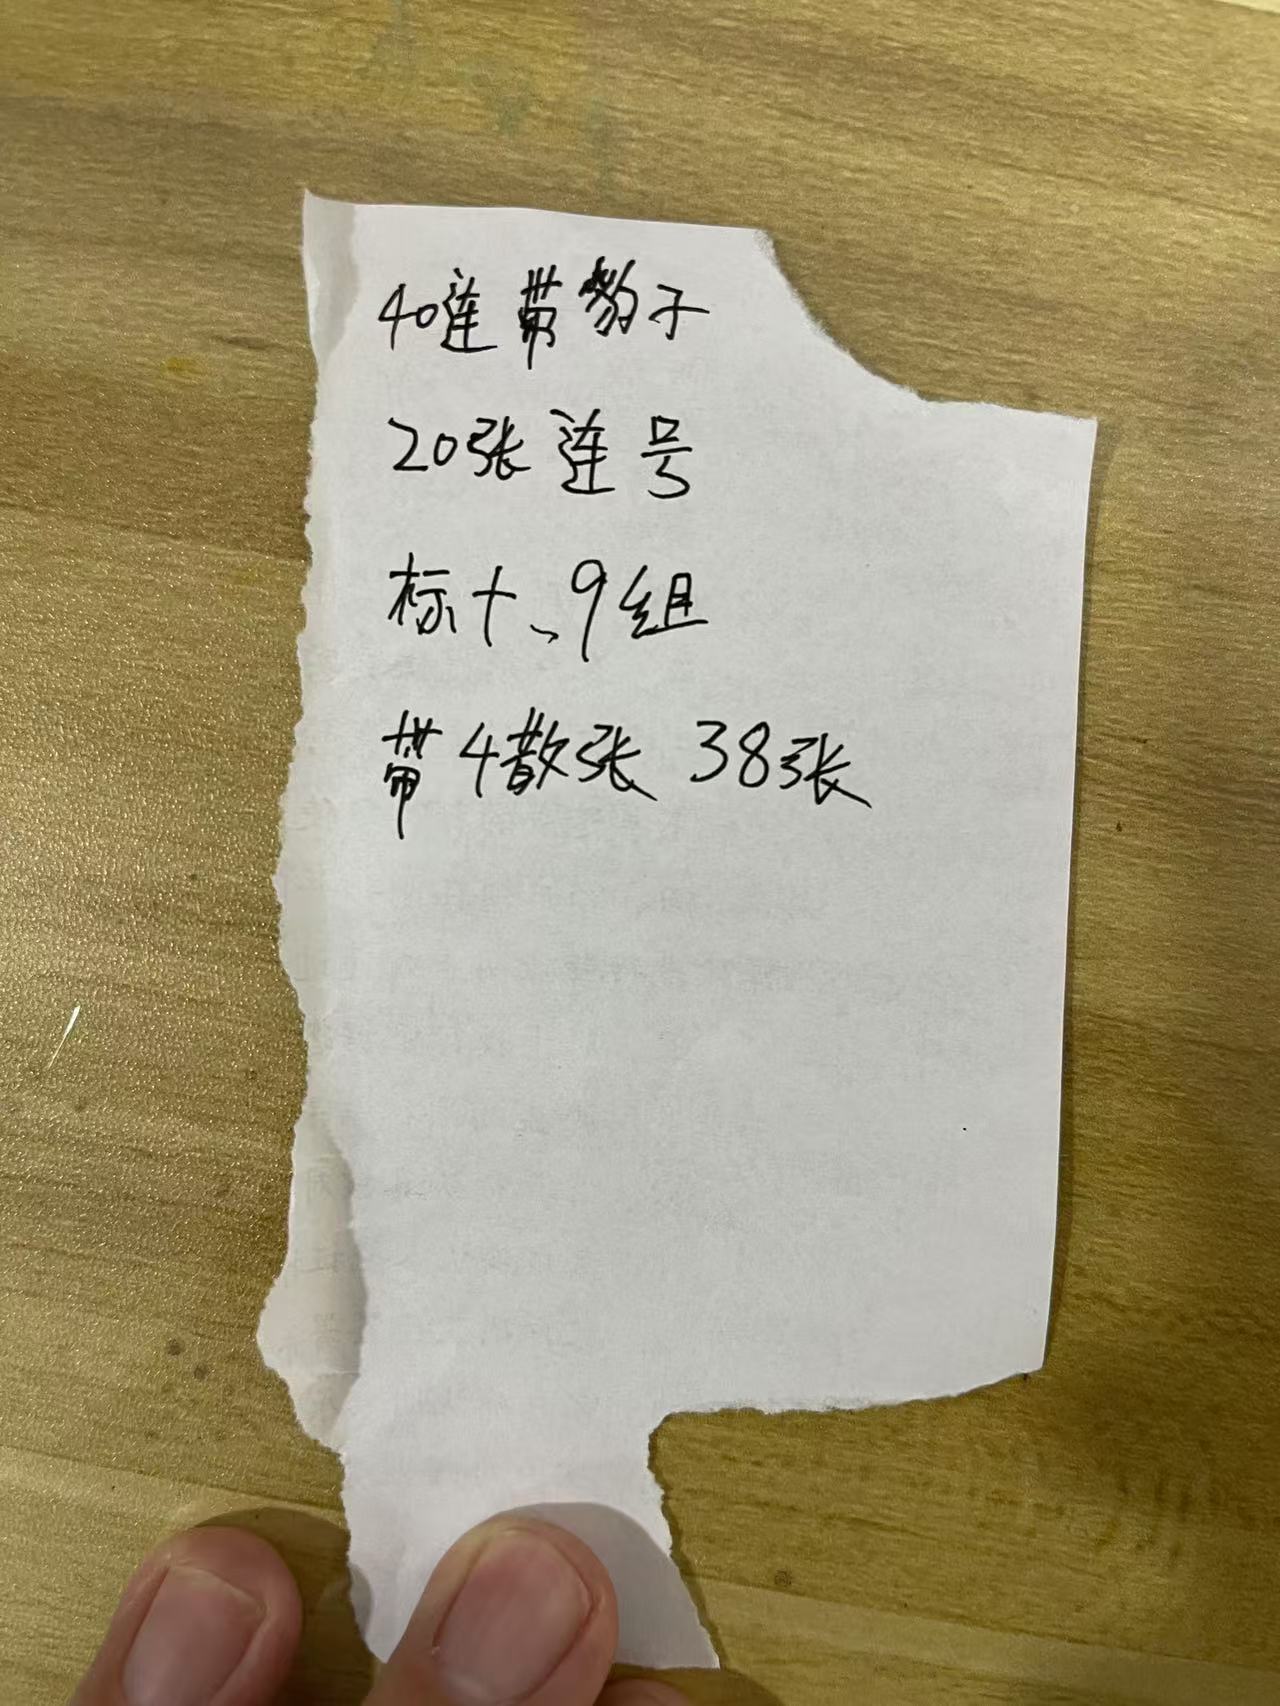 40连带豹子
20张连号
标十、9组
带4散张 38张